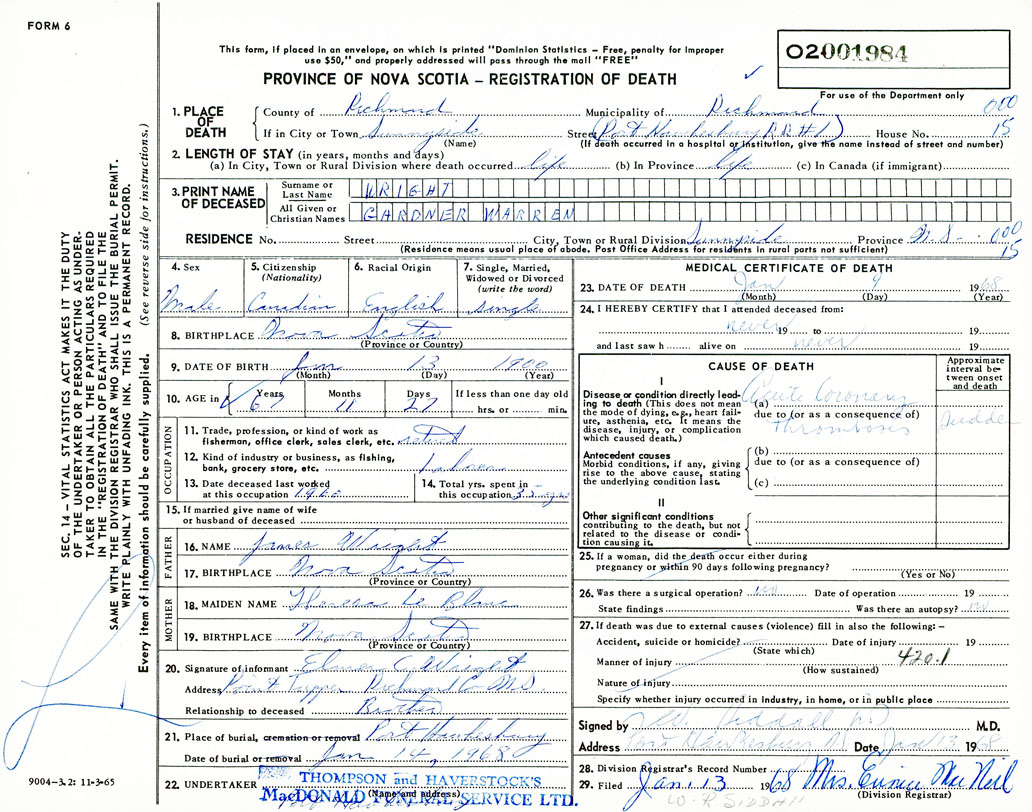 FORM 6
This form, if placed in an envelope, on which is printed "Dominion Statistics – Free, penalty for improper
use $50," and properly addressed will pass through the mail "FREE"
PROVINCE OF NOVA SCOTIA – REGISTRATION OF DEATH
02001984
For use of the Department only
1. PLACE OF DEATH
County of Richmond Municipality of Richmond 000
If in City or Town Sunnyside Street (Port Hawkesbury RR#1) House No. 15
(Name) (If death occurred in a hospital or institution, give the name instead of street and number)
2. LENGTH OF STAY (in years, months and days)
(a) In City, Town or Rural Division where death occurred life (b) In Province life (c) In Canada (if immigrant)
3. PRINT NAME OF DECEASED
Surname or Last Name WRIGHT
All Given or Christian Names GARDNER WARREN
RESIDENCE No. Street City, Town or Rural Division Sunnyside Province N.S. 000
(Residence means usual place of abode. Post Office Address for residents in rural parts not sufficient) 15
4. Sex Male
5. Citizenship (Nationality) Canadian
6. Racial Origin English
7. Single, Married, Widowed or Divorced (write the word) single
8. BIRTHPLACE Nova Scotia
(Province or Country)
9. DATE OF BIRTH 13 1900
(Month) (Day) (Year)
10. AGE in Years 67 Months 11 Days 27 If less than one day old
hrs. or min.
OCCUPATION
11. Trade, profession, or kind of work as
fisherman, office clerk, sales clerk, etc. retired
12. Kind of industry or business, as fishing,
bank, grocery store, etc. Labourer
13. Date deceased last worked
at this occupation 1960
14. Total yrs. spent in
this occupation 35 yrs
15. If married give name of wife
or husband of deceased
FATHER
16. NAME James Wright
17. BIRTHPLACE Nova Scotia
(Province or Country)
MOTHER
18. MAIDEN NAME Theresa Le Blanc
19. BIRTHPLACE Nova Scotia
(Province or Country)
20. Signature of informant C. Wright
Address Point Tupper Richmond Co N.S.
Relationship to deceased Brother
21. Place of burial, cremation or removal Port Hawkesbury
Date of burial or removal Jan 14, 1968
22. UNDERTAKER THOMPSON and HAVERSTOCK'S
(Name and address)
MacDONALD FUNERAL SERVICE LTD.
MEDICAL CERTIFICATE OF DEATH
23. DATE OF DEATH Jan 9 1968
(Month) (Day) (Year)
24. I HEREBY CERTIFY that I attended deceased from:
never 19 to 19
and last saw h alive on never 19
CAUSE OF DEATH
Approximate interval between onset and death
I
Disease or condition directly leading to death (This does not mean the mode of dying, e.g., heart failure, asthenia, etc. It means the disease, injury, or complication which caused death.)
(a) Acute Coronary
due to (or as a consequence of)
Thrombosis Sudden
Antecedent causes
Morbid conditions, if any, giving rise to the above cause, stating the underlying condition last.
(b)
due to (or as a consequence of)
(c)
II
Other significant conditions
contributing to the death, but not related to the disease or condition causing it.
25. If a woman, did the death occur either during
pregnancy or within 90 days following pregnancy?
(Yes or No)
26. Was there a surgical operation? no Date of operation 19
State findings Was there an autopsy? no
27. If death was due to external causes (violence) fill in also the following: –
Accident, suicide or homicide? Date of injury 19
(State which)
Manner of injury 420.1
(How sustained)
Nature of injury
Specify whether injury occurred in industry, in home, or in public place
Signed by M.D.
Address Port Hawkesbury Date Jan 13 1968
28. Division Registrar's Record Number
29. Filed Jan. 13 1968 Mrs. Eunice McNeil
(Division Registrar)
W. R. SIDDALL
SEC. 14 – VITAL STATISTICS ACT MAKES IT THE DUTY
OF THE UNDERTAKER OR PERSON ACTING AS UNDER-
TAKER TO OBTAIN ALL THE PARTICULARS REQUIRED
IN THE "REGISTRATION OF DEATH" AND TO FILE THE
SAME WITH THE DIVISION REGISTRAR WHO SHALL ISSUE THE BURIAL PERMIT.
WRITE PLAINLY WITH UNFADING INK. THIS IS A PERMANENT RECORD.
Every item of information should be carefully supplied. (See reverse side for instructions.)
9004-3.2: 11-3-65